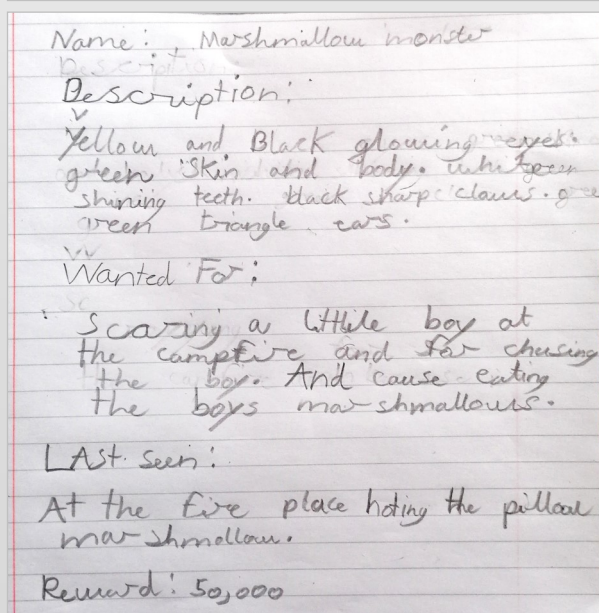 Name: Marshmallow monster
Description:
Yellow and Black glowing eyes.
green skin and body. white
shining teeth. black sharp claws.
green triangle ears.
Wanted For:
Scaring a little boy at
the campfire and for chasing
the boy. And cause eating
the boys marshmallows.
LAst seen:
At the fire place hoting the pillow
marshmollow.
Reward: 50,000